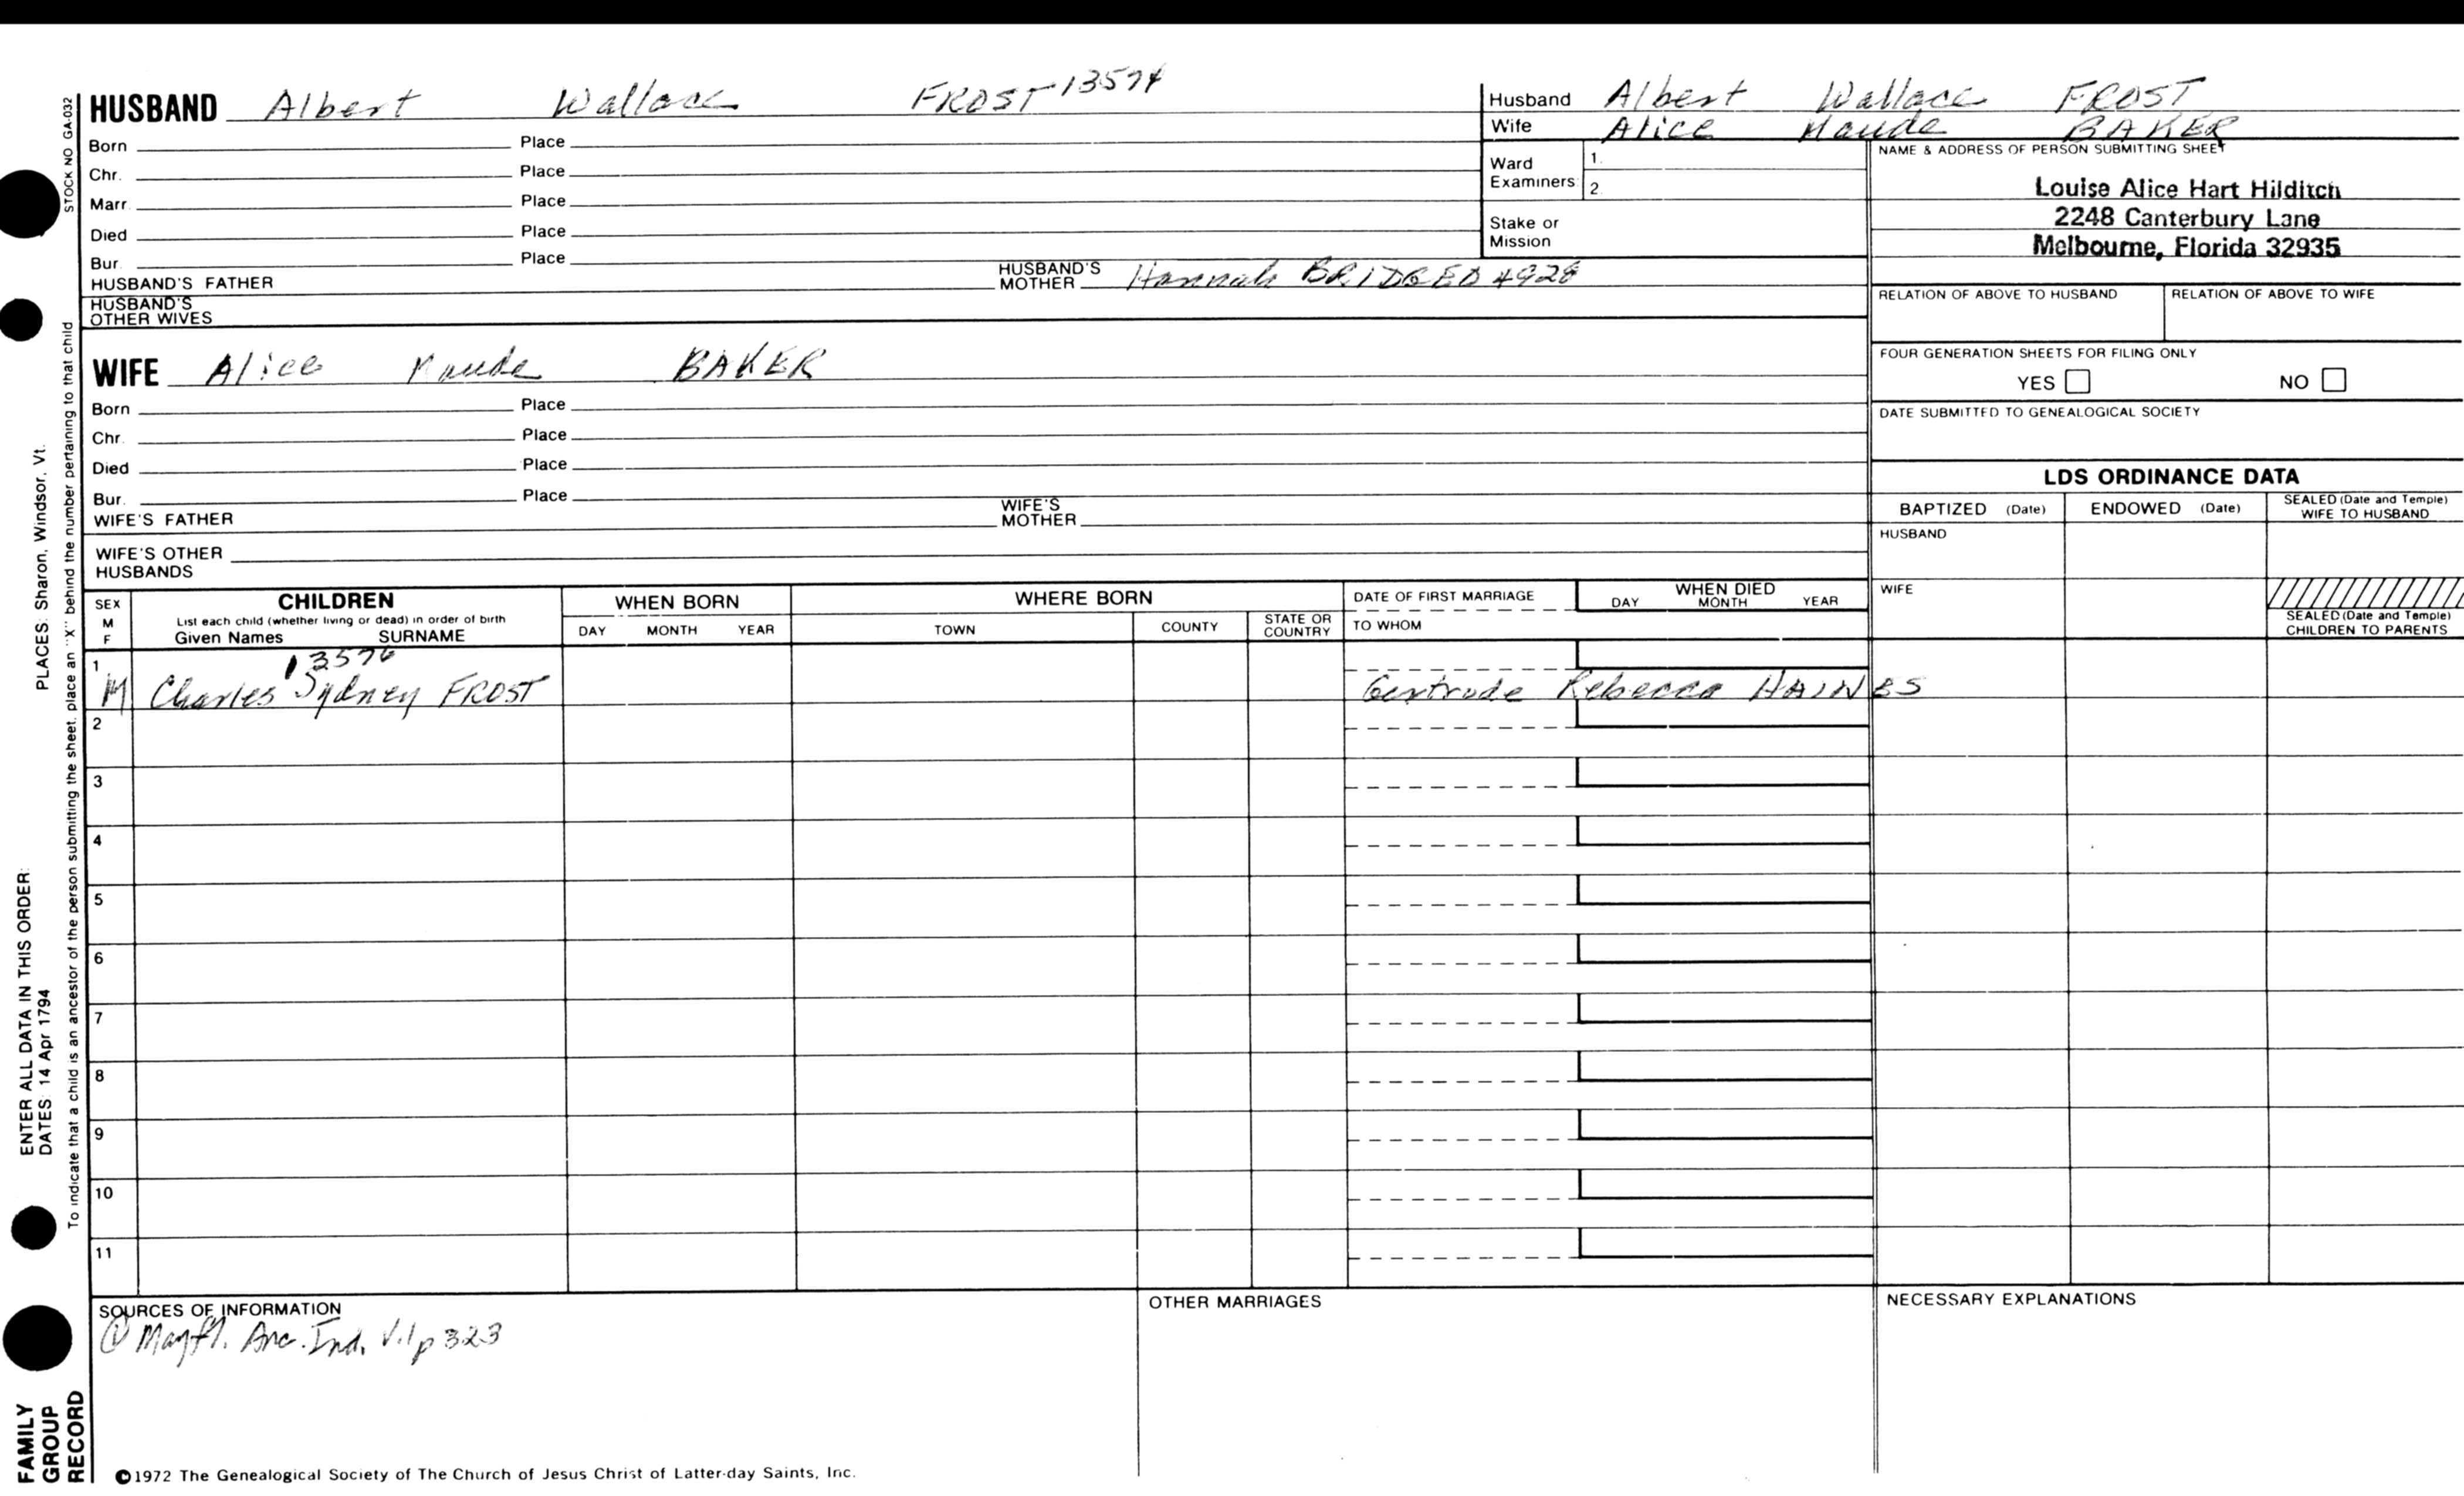 HUSBAND Albert Wallace FROST 13574
Born Place
Chr. Place
Marr. Place
Died Place
Bur. Place
HUSBAND'S FATHER HUSBAND'S MOTHER Hannah 4928
HUSBAND'S OTHER WIVES
WIFE Alice Maude BAKER
Born Place
Chr. Place
Died Place
Bur. Place
WIFE'S FATHER WIFE'S MOTHER
WIFE'S OTHER HUSBANDS
Husband Albert Wallace FROST
Wife Alice Maude BAKER
Ward Examiners: 1.
2.
Stake or Mission
NAME & ADDRESS OF PERSON SUBMITTING SHEET
Louise Alice Hart Hilditch
2248 Canterbury Lane
Melbourne, Florida 32935
RELATION OF ABOVE TO HUSBAND RELATION OF ABOVE TO WIFE
FOUR GENERATION SHEETS FOR FILING ONLY
YES NO
DATE SUBMITTED TO GENEALOGICAL SOCIETY
LDS ORDINANCE DATA
BAPTIZED (Date) ENDOWED (Date) SEALED (Date and Temple) WIFE TO HUSBAND
HUSBAND
WIFE
SEALED (Date and Temple) CHILDREN TO PARENTS
SEX M F
CHILDREN
List each child (whether living or dead) in order of birth
Given Names SURNAME
WHEN BORN
DAY MONTH YEAR
WHERE BORN
TOWN COUNTY STATE OR COUNTRY
DATE OF FIRST MARRIAGE
TO WHOM
WHEN DIED
DAY MONTH YEAR
1 13576
M Charles Sydney FROST Gertrude Rebecca HAINES
2
3
4
5
6
7
8
9
10
11
SOURCES OF INFORMATION
① Mayfl. Anc. Ind. V.1 p 323
OTHER MARRIAGES
NECESSARY EXPLANATIONS
©1972 The Genealogical Society of The Church of Jesus Christ of Latter-day Saints, Inc.
STOCK NO GA-032
To indicate that a child is an ancestor of the person submitting the sheet, place an "X" behind the number pertaining to that child
PLACES: Sharon, Windsor, Vt.
ENTER ALL DATA IN THIS ORDER:
DATES: 14 Apr 1794
FAMILY
GROUP
RECORD